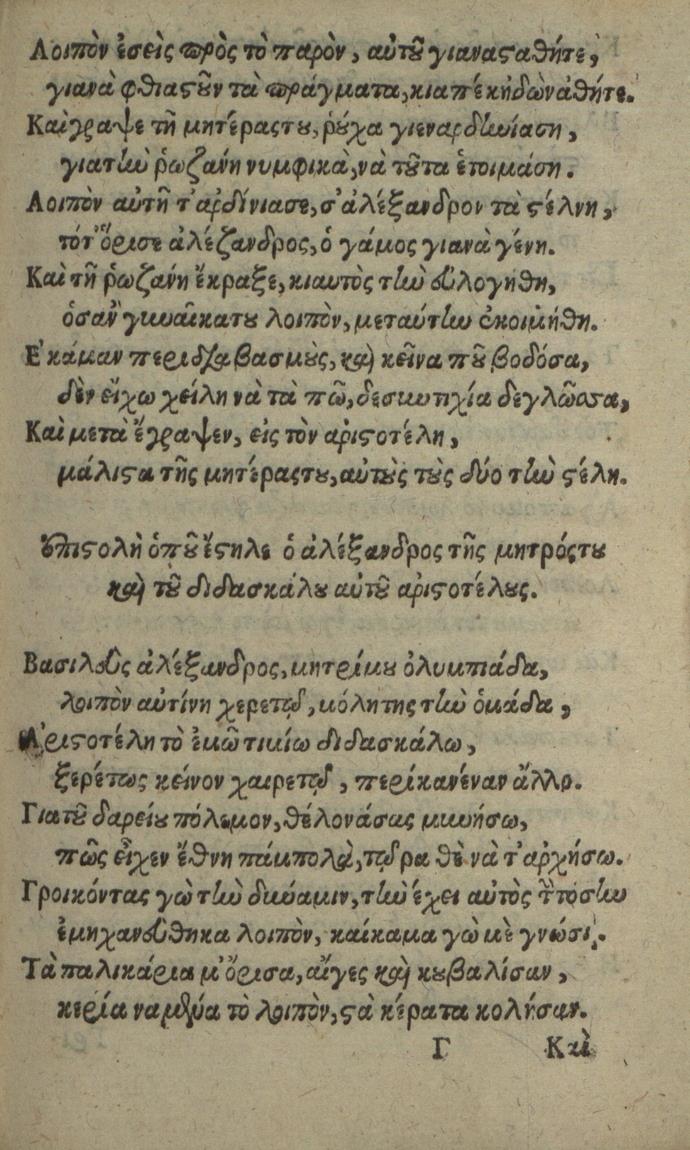 Λοιπὸν ἐσεὶς πρὸς τὸ παρὸν, αὐτοῦ γιαναςαθῆτε,
γιανὰ φθιαςοῦν τὰ πράγματα, κιαπέκηδῶνἀθῆτε.
Καὶγραψε τῆ μητέραςτου, ῥοῦχα γιεναρδινίαση,
γιατὴν ῥωζάνη νυμφικὰ, νὰ τοῦτα ἑτοιμάση.
Λοιπὸν αὐτὴ τ' αρδίνιασε, σ' αλέξανδρον τὰ ςέλνη,
τότ' ὅρισε ἀλέζανδρος, ὁ γάμος γιανὰ γένη.
Καὶ τῆ ῥωζάνη ἔκραξε, κιαυτὸς τὴν εὐλογήθη,
ὁσὰν γυναῖκατου λοιπὸν, μεταύτὴν ἐκοιμήθη.
Ε'κάμαν περιδζαβασμοὺς, καὶ κεῖνα ποῦ βοδόσα,
δὲν εἴχω χείλη νὰ τὰ πῶ, δεσκυτιχία δεγλῶσσα,
Καὶ μετὰ ἔγραψεν, εἰς τὸν αριςοτέλη,
μάλιςα τῆς μητέραςτου, αὐτοὺς τοὺς δύο τὴν ςέλη.
ἐπιςολὴ ὁποῦ ἔςηλε ὁ ἀλέξανδρος τῆς μητρόςτου
καὶ τοῦ διδασκάλου αὐτοῦ αριςοτέλους.
Βασιλεὺς ἀλέξανδρος, μητρίμου ὀλυμπιάδα,
λοιπὸν αὐτίνη χερετῶ, κόλητης τὴν ὁμάδα,
Α'ριςοτέλη τὸ ἐμῶ τιμίω διδασκάλω,
ξερέτως κείνον χαιρετῶ, περίκανέναν ἄλλο.
Γιατοῦ δαρείου πόλεμον, θέλονάσας μινήσω,
πῶς εἶχεν ἔθνη πάμπολα, τώρα θὲ νὰ τ' αρχήσω.
Γροικόντας γὼ τὴν δύναμιν, τὴν ἔχει αὐτὸς ἤτοςην
ἐμηχανεύθηκα λοιπὸν, καίκαμα γὼ μὲ γνώσι.
Τὰ παλικάρια μ' ὅρισα, αἶγες καὶ κουβαλίσαν,
κερία ναμμένα τὸ λοιπὸν, ςὰ κέρατα κολῆσαν.
Γ Καὶ